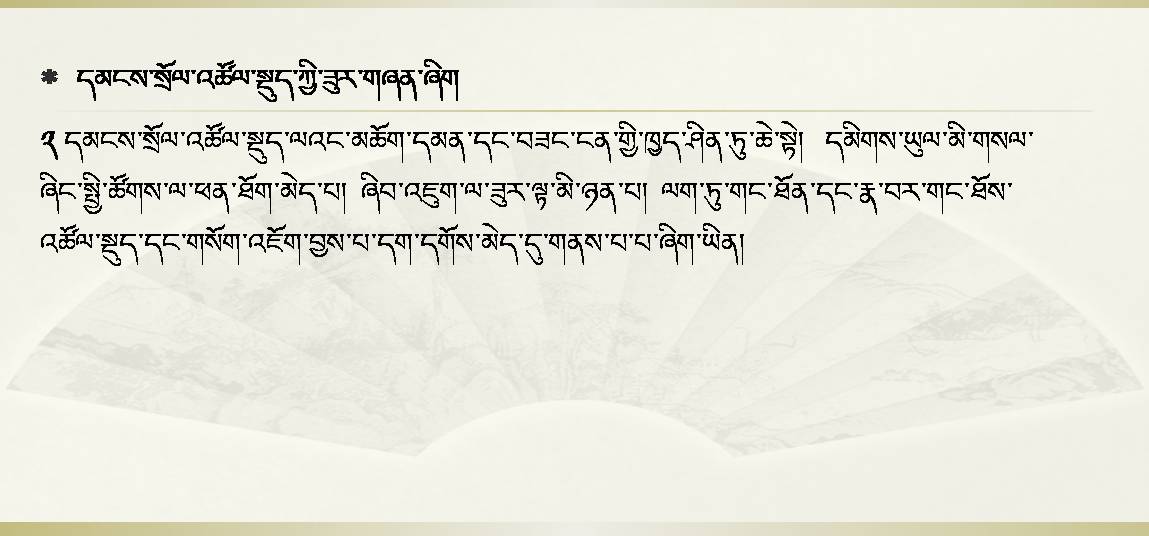 དམངས་སྲོལ་འཚོལ་སྡུད་ཀྱི་ཟུར་གཞན་ཞིག
༢ དམངས་སྲོལ་འཚོལ་སྡུད་ལའང་མཆོག་དམན་དང་བཟང་ངན་གྱི་ཁྱད་ཤིན་ཏུ་ཆེ་སྟེ། དམིགས་ཡུལ་མི་གསལ་
ཞིང་སྤྱི་ཚོགས་ལ་ཕན་ཐོག་མེད་པ། ཞིབ་འཇུག་ལ་ཟུར་ལྟ་མི་ཉན་པ། ལག་ཏུ་གང་ཐོན་དང་རྣ་བར་གང་ཐོས་
འཚོལ་སྡུད་དང་གསོག་འཇོག་བྱས་པ་དག་དགོས་མེད་དུ་གནས་པ་པ་ཞིག་ཡིན།